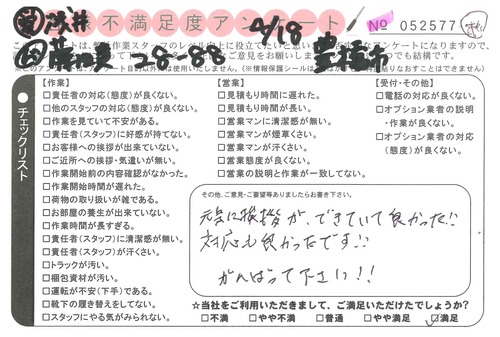 営 浅井 不満足度アンケート 4/18 No 052577
作 藤 28-88 豊橋市
【作業】
□責任者の対応(態度)が良くない。
□他のスタッフの対応(態度)が良くない。
□作業を見ていて不安がある。
□責任者(スタッフ)に好感が持てない。
□お客様への挨拶が出来ていない。
□ご近所への挨拶・気遣いが無い。
□作業開始前の内容確認がなかった。
□作業開始時間が遅れた。
□荷物の取り扱いが雑である。
□お部屋の養生が出来ていない。
□作業時間が長すぎる。
□責任者(スタッフ)に清潔感が無い。
□責任者(スタッフ)が汗くさい。
□トラックが汚い。
□梱包資材が汚い。
□運転が不安(下手)である。
□靴下の履き替えをしてない。
□スタッフにやる気がみられない。
【営業】
□見積もり時間に遅れた。
□見積もり時間が長い。
□営業マンに清潔感が無い。
□営業マンが煙草くさい。
□営業マンが汗くさい。
□営業態度が良くない。
□営業の説明と作業が一致してない。
【受付・その他】
□電話の対応が良くない。
□オプション業者の説明
・作業が良くない。
□オプション業者の対応
(態度)が良くない。
●チェックリスト
その他、ご意見・ご要望等ありましたらお書き下さい。
元気に挨拶が、できていて良かった!!
対応も良かったです!!
がんばって下さい!!
☆当社をご利用いただきまして、ご満足いただけたでしょうか?
□不満 □やや不満 □普通 □やや満足 ☑満足